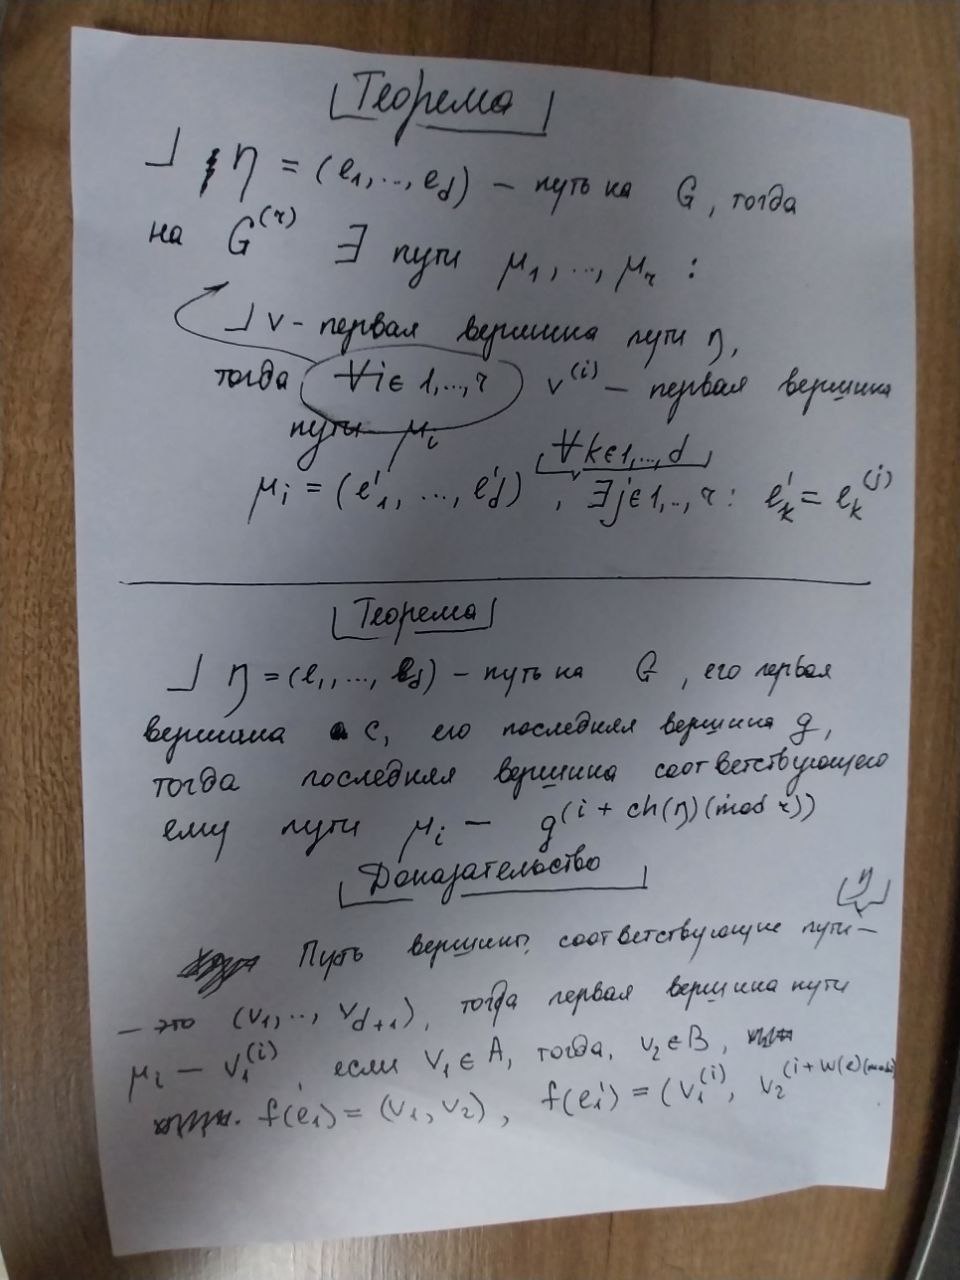 Теорема
⅃ η = (e₁,..,e_d) – путь на G, тогда
на G^(r) ∃ пути μ₁,...,μ_r :
⅃ v - первая вершина пути η,
тогда ∀i∈ 1,...,r v^(i) – первая вершина
пути μ_i
∀k∈1,...,d
μ_i = (e'₁, ..., e'_d) , ∃j∈1,..,r: e'_k = e_k^(j)
Теорема
⅃ η = (e₁,..., e_d) – путь на G , его первая
вершина c, его последняя вершина g,
тогда последняя вершина соответствующего
ему пути μ_i – g^(i + ch(η)(mod r))
Доказательство
η
Пусть вершины, соответствующие пути –
– это (v₁,.., v_{d+1}), тогда первая вершина пути
μ_i – v₁^(i), если v₁ ∈ A, тогда, v₂ ∈ B,
f(e₁) = (v₁, v₂), f(e'₁) = (v₁^(i), v₂^(i + w(e)(mod